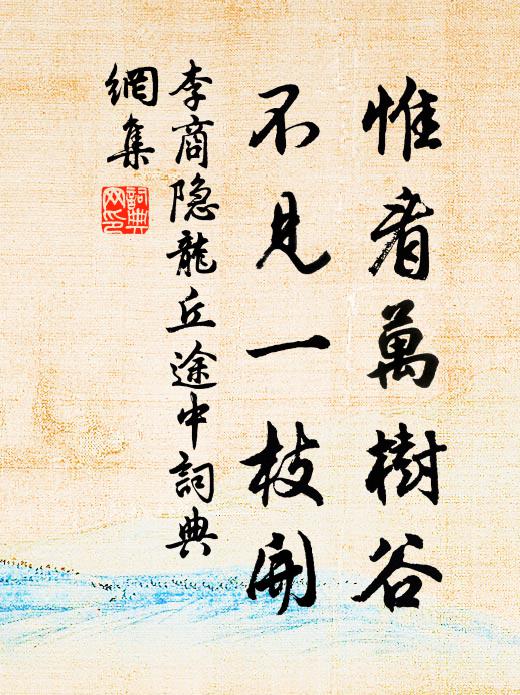 惟看萬樹谷
不見一枝開
李商隐龍丘途中詞典
網集
詞典
网印